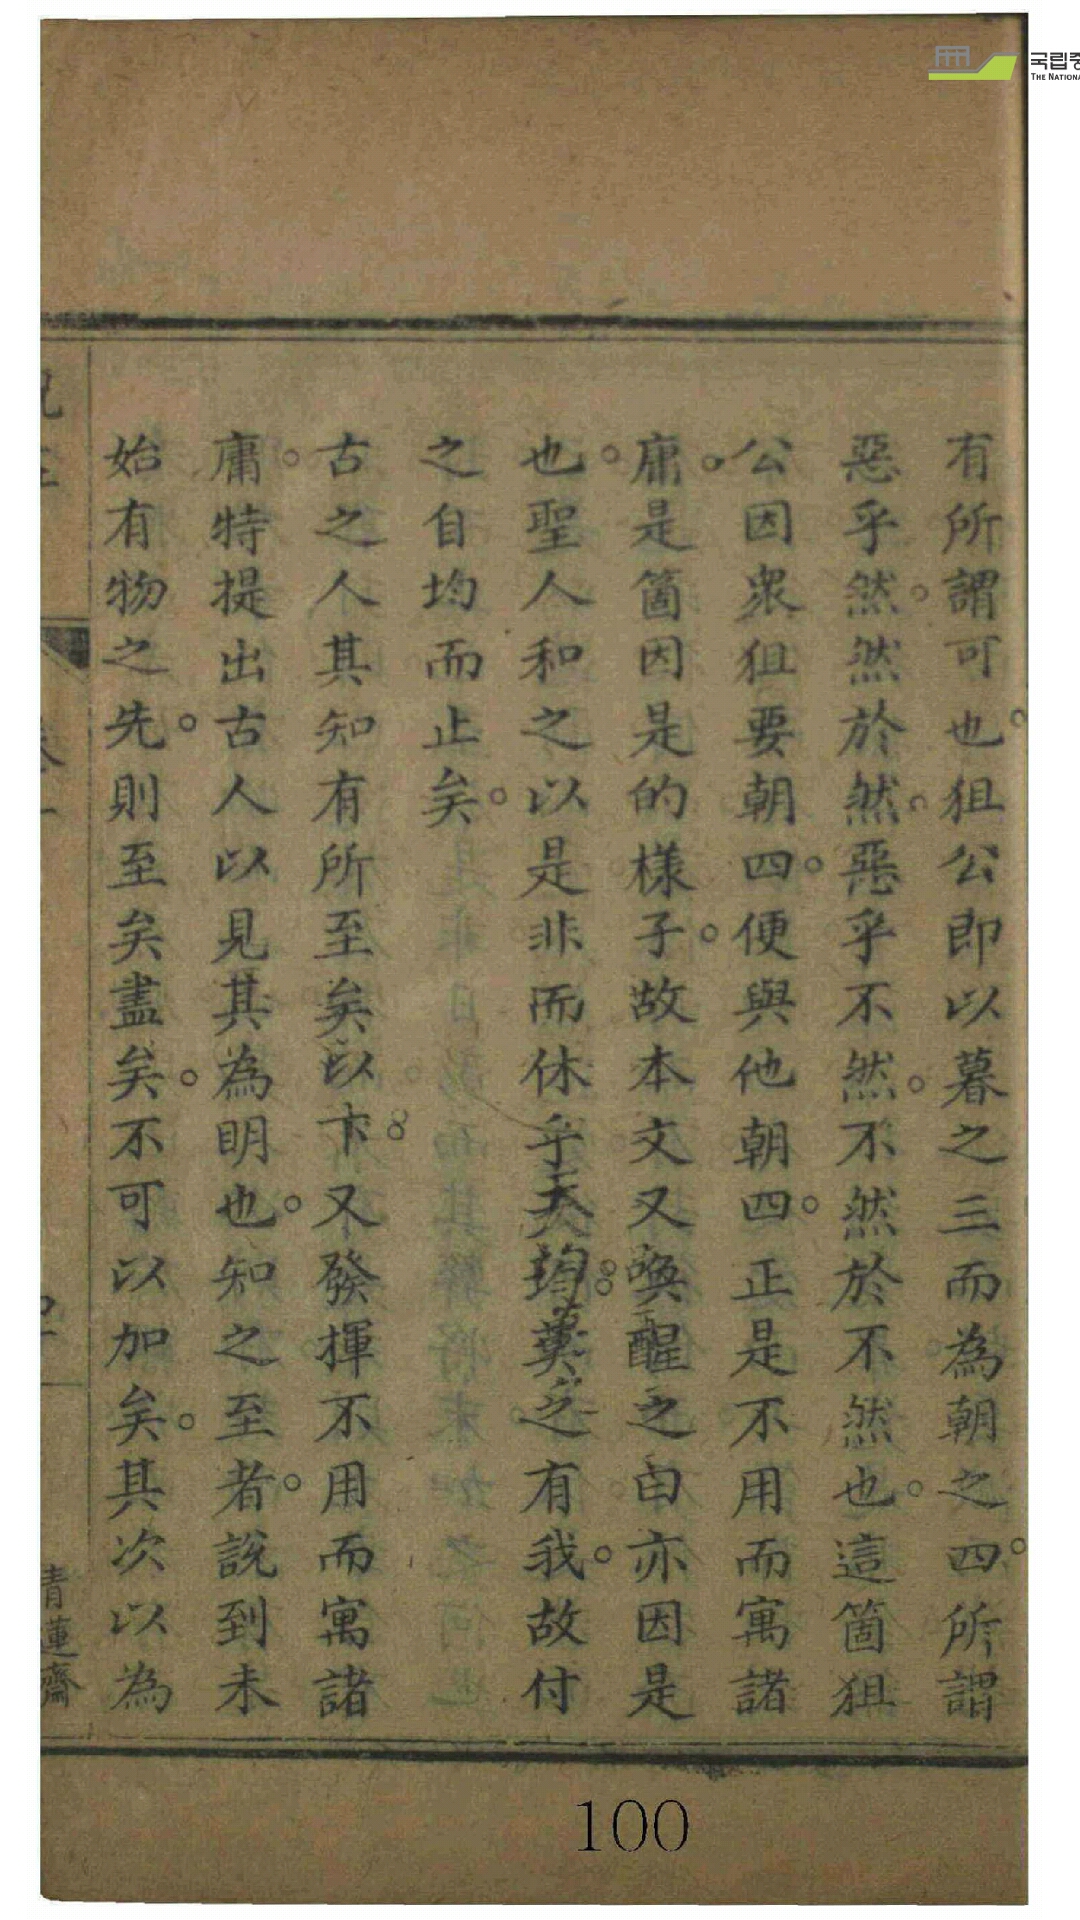 有所謂可也狙公即以暮之三而為朝之四所謂
惡乎然然於然惡乎不然不然於不然也這箇狙
公因衆狙要朝四便與他朝四正是不用而寓諸
庸是箇因是的樣子故本文又喚醒之曰亦因是
也聖人和之以是非而休乎天均莫之有我故付
之自均而止矣
古之人其知有所至矣以下又發揮不用而寓諸
庸特提出古人以見其為明也知之至者說到未
始有物之先則至矣盡矣不可以加矣其次以為
青蓮齋
100
국립중
THE NATIONA